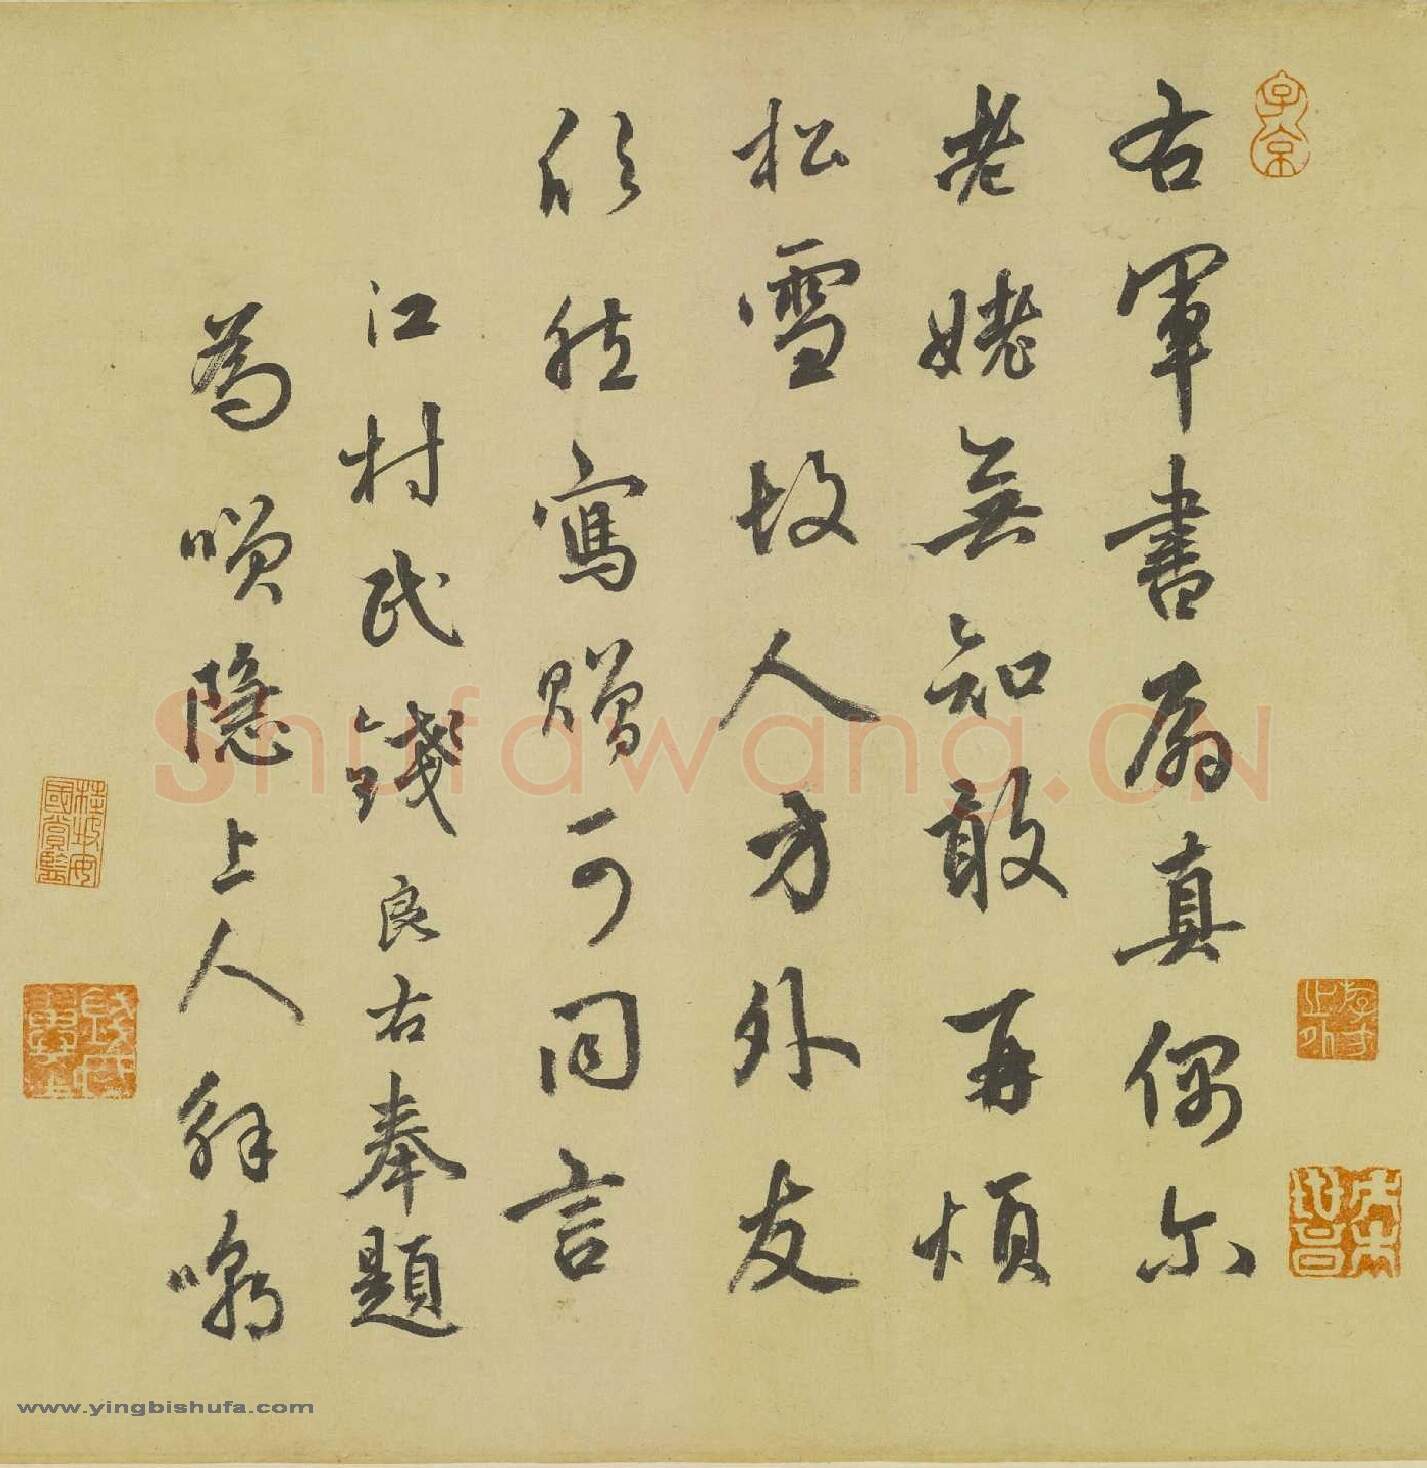 右軍書扇真偶尔
老姥無知敢再煩
松雪故人方外友
欣然寫贈可同言
江村民錢良右奉題
為嘿隱上人解嘲
子京
Shufawang.CN
www.yingbishufa.com